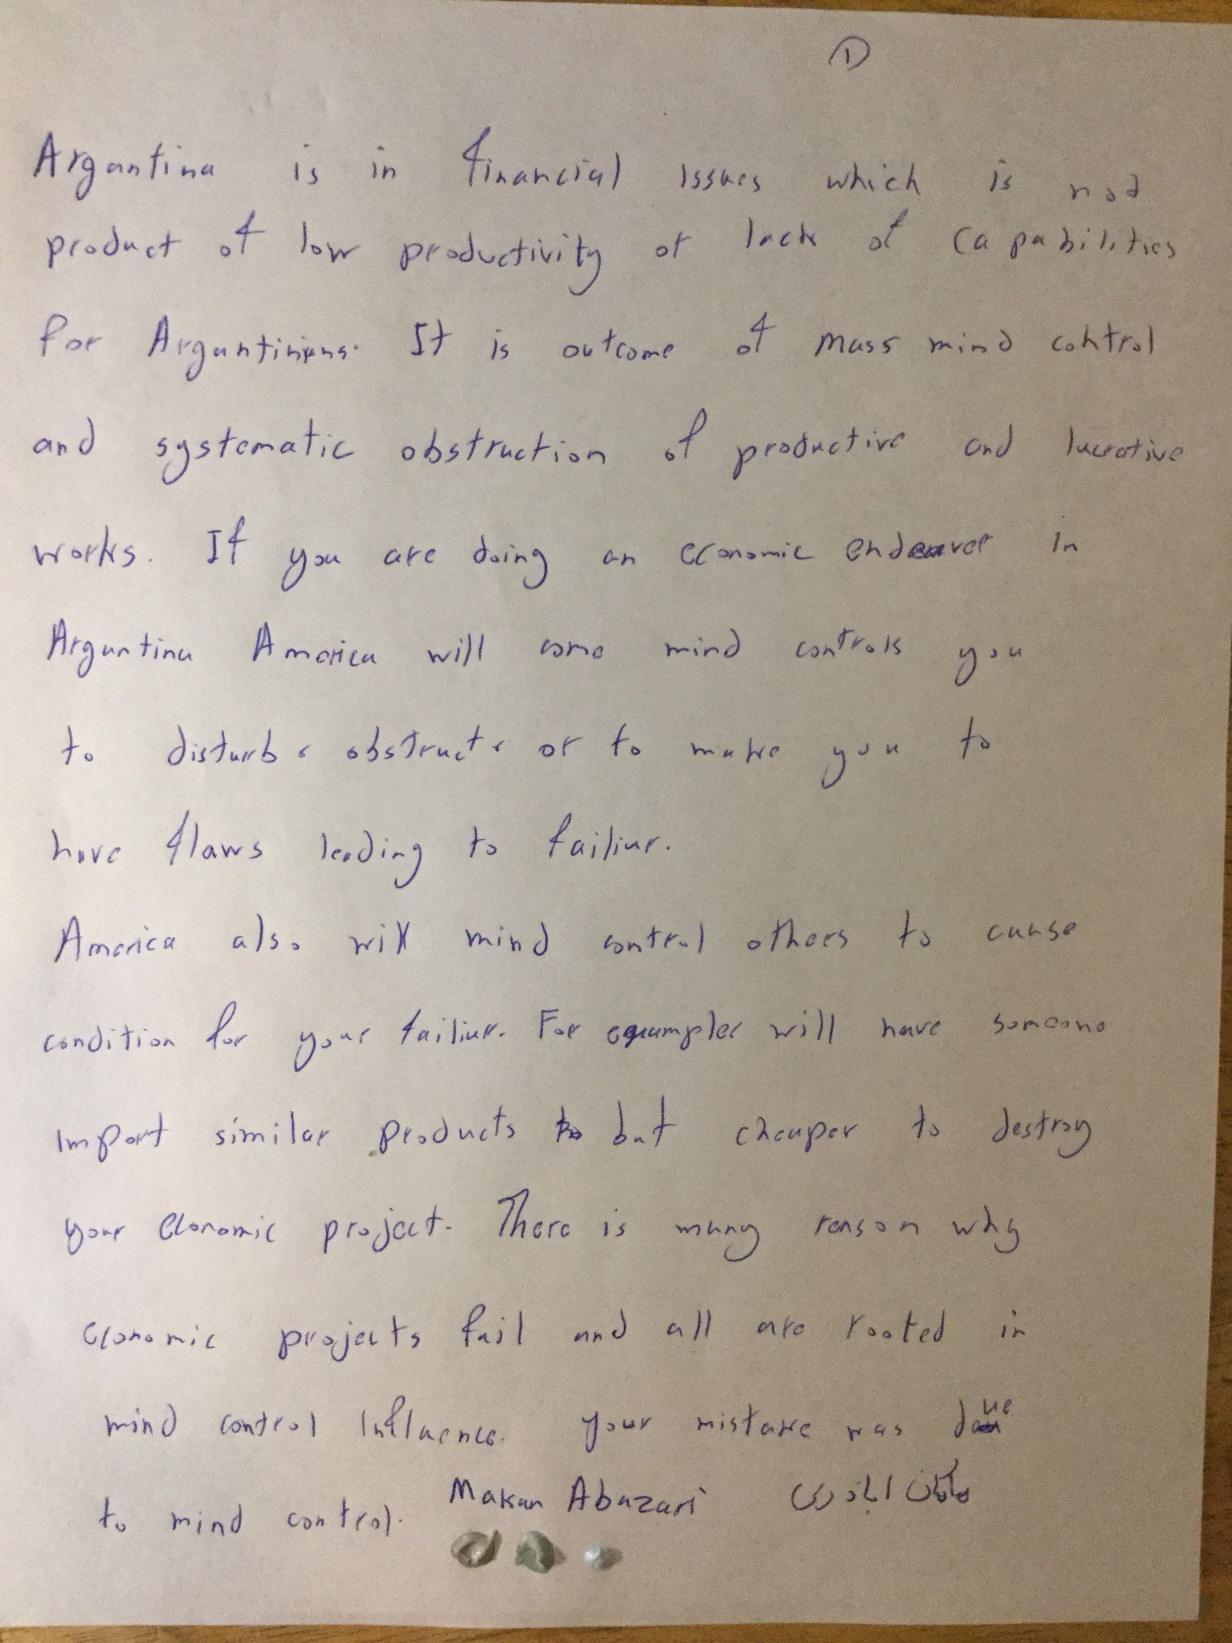 1
Argantina is in financial issues which is not
product of low productivity or lack of capabilities
for Argantinians. It is outcome of mass mind control
and systematic obstruction of productive and lucrative
works. If you are doing an economic endeaver in
Argantina America will come mind controls you
to disturb, obstruct, or to make you to
have flaws leading to failiur.
America also will mind control others to cause
condition for your failiur. For exampler will have someone
import similar products but cheaper to destroy
your economic project. There is many reason why
economic projects fail and all are rooted in
mind control influence. your mistake was due
to mind control. Makan Abazari ماکان اباذری